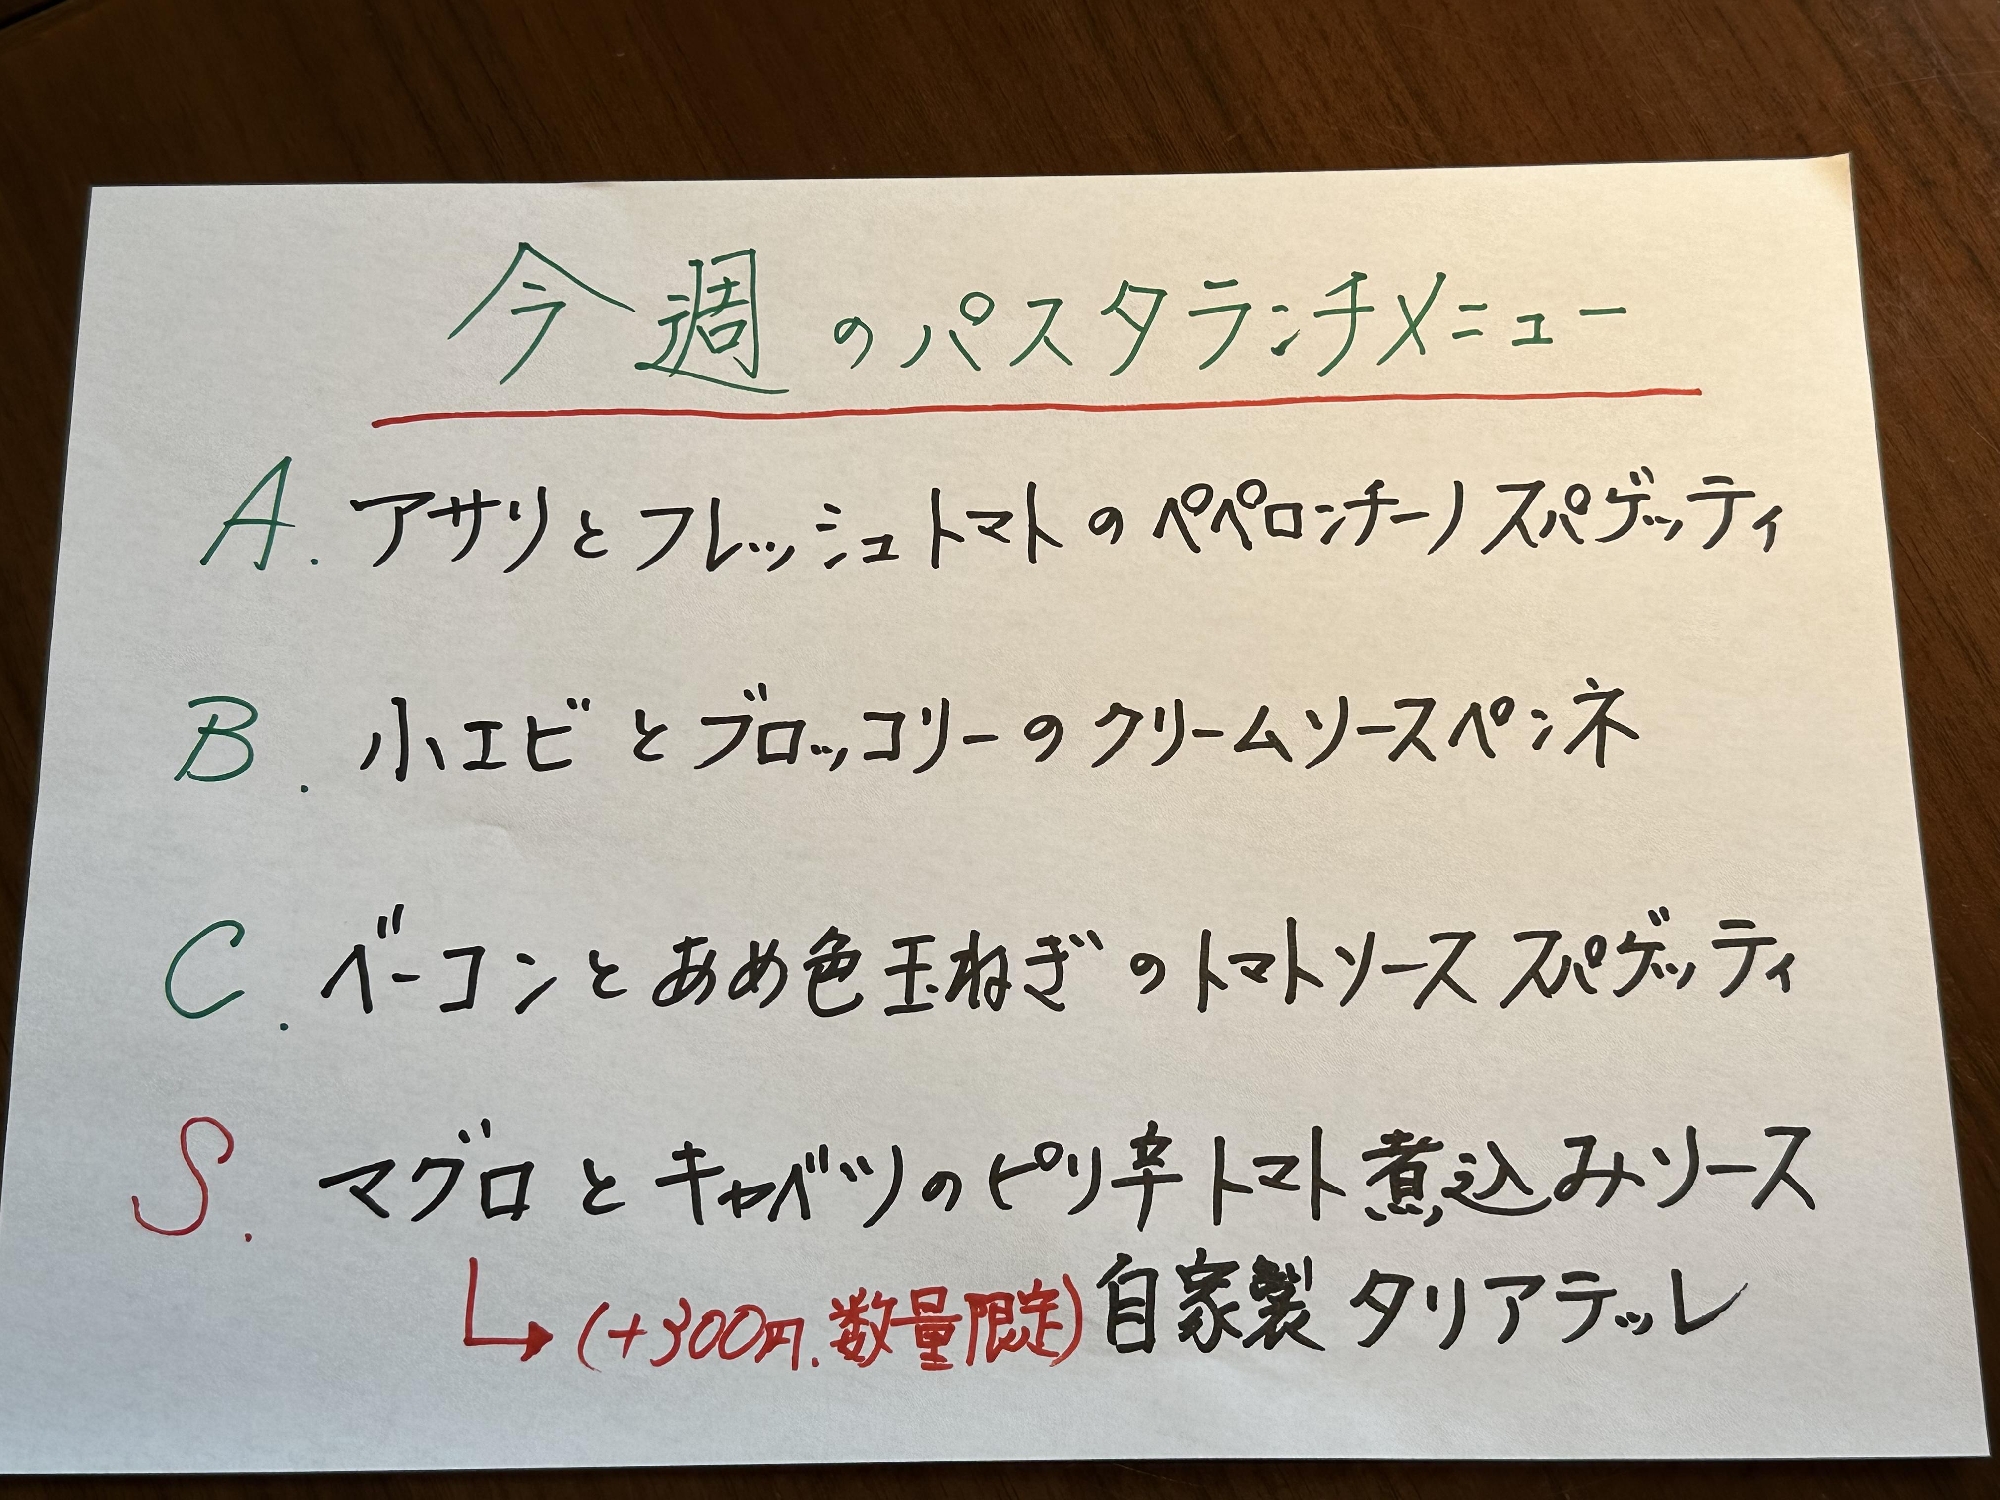 今週のパスタランチメニュー
A. アサリとフレッシュトマトのペペロンチーノ スパゲッティ
B. 小エビとブロッコリーのクリームソースペンネ
C. ベーコンとあめ色玉ねぎのトマトソース スパゲッティ
S. マグロとキャベツのピリ辛トマト煮込みソース
(+300円.数量限定) 自家製 タリアテッレ